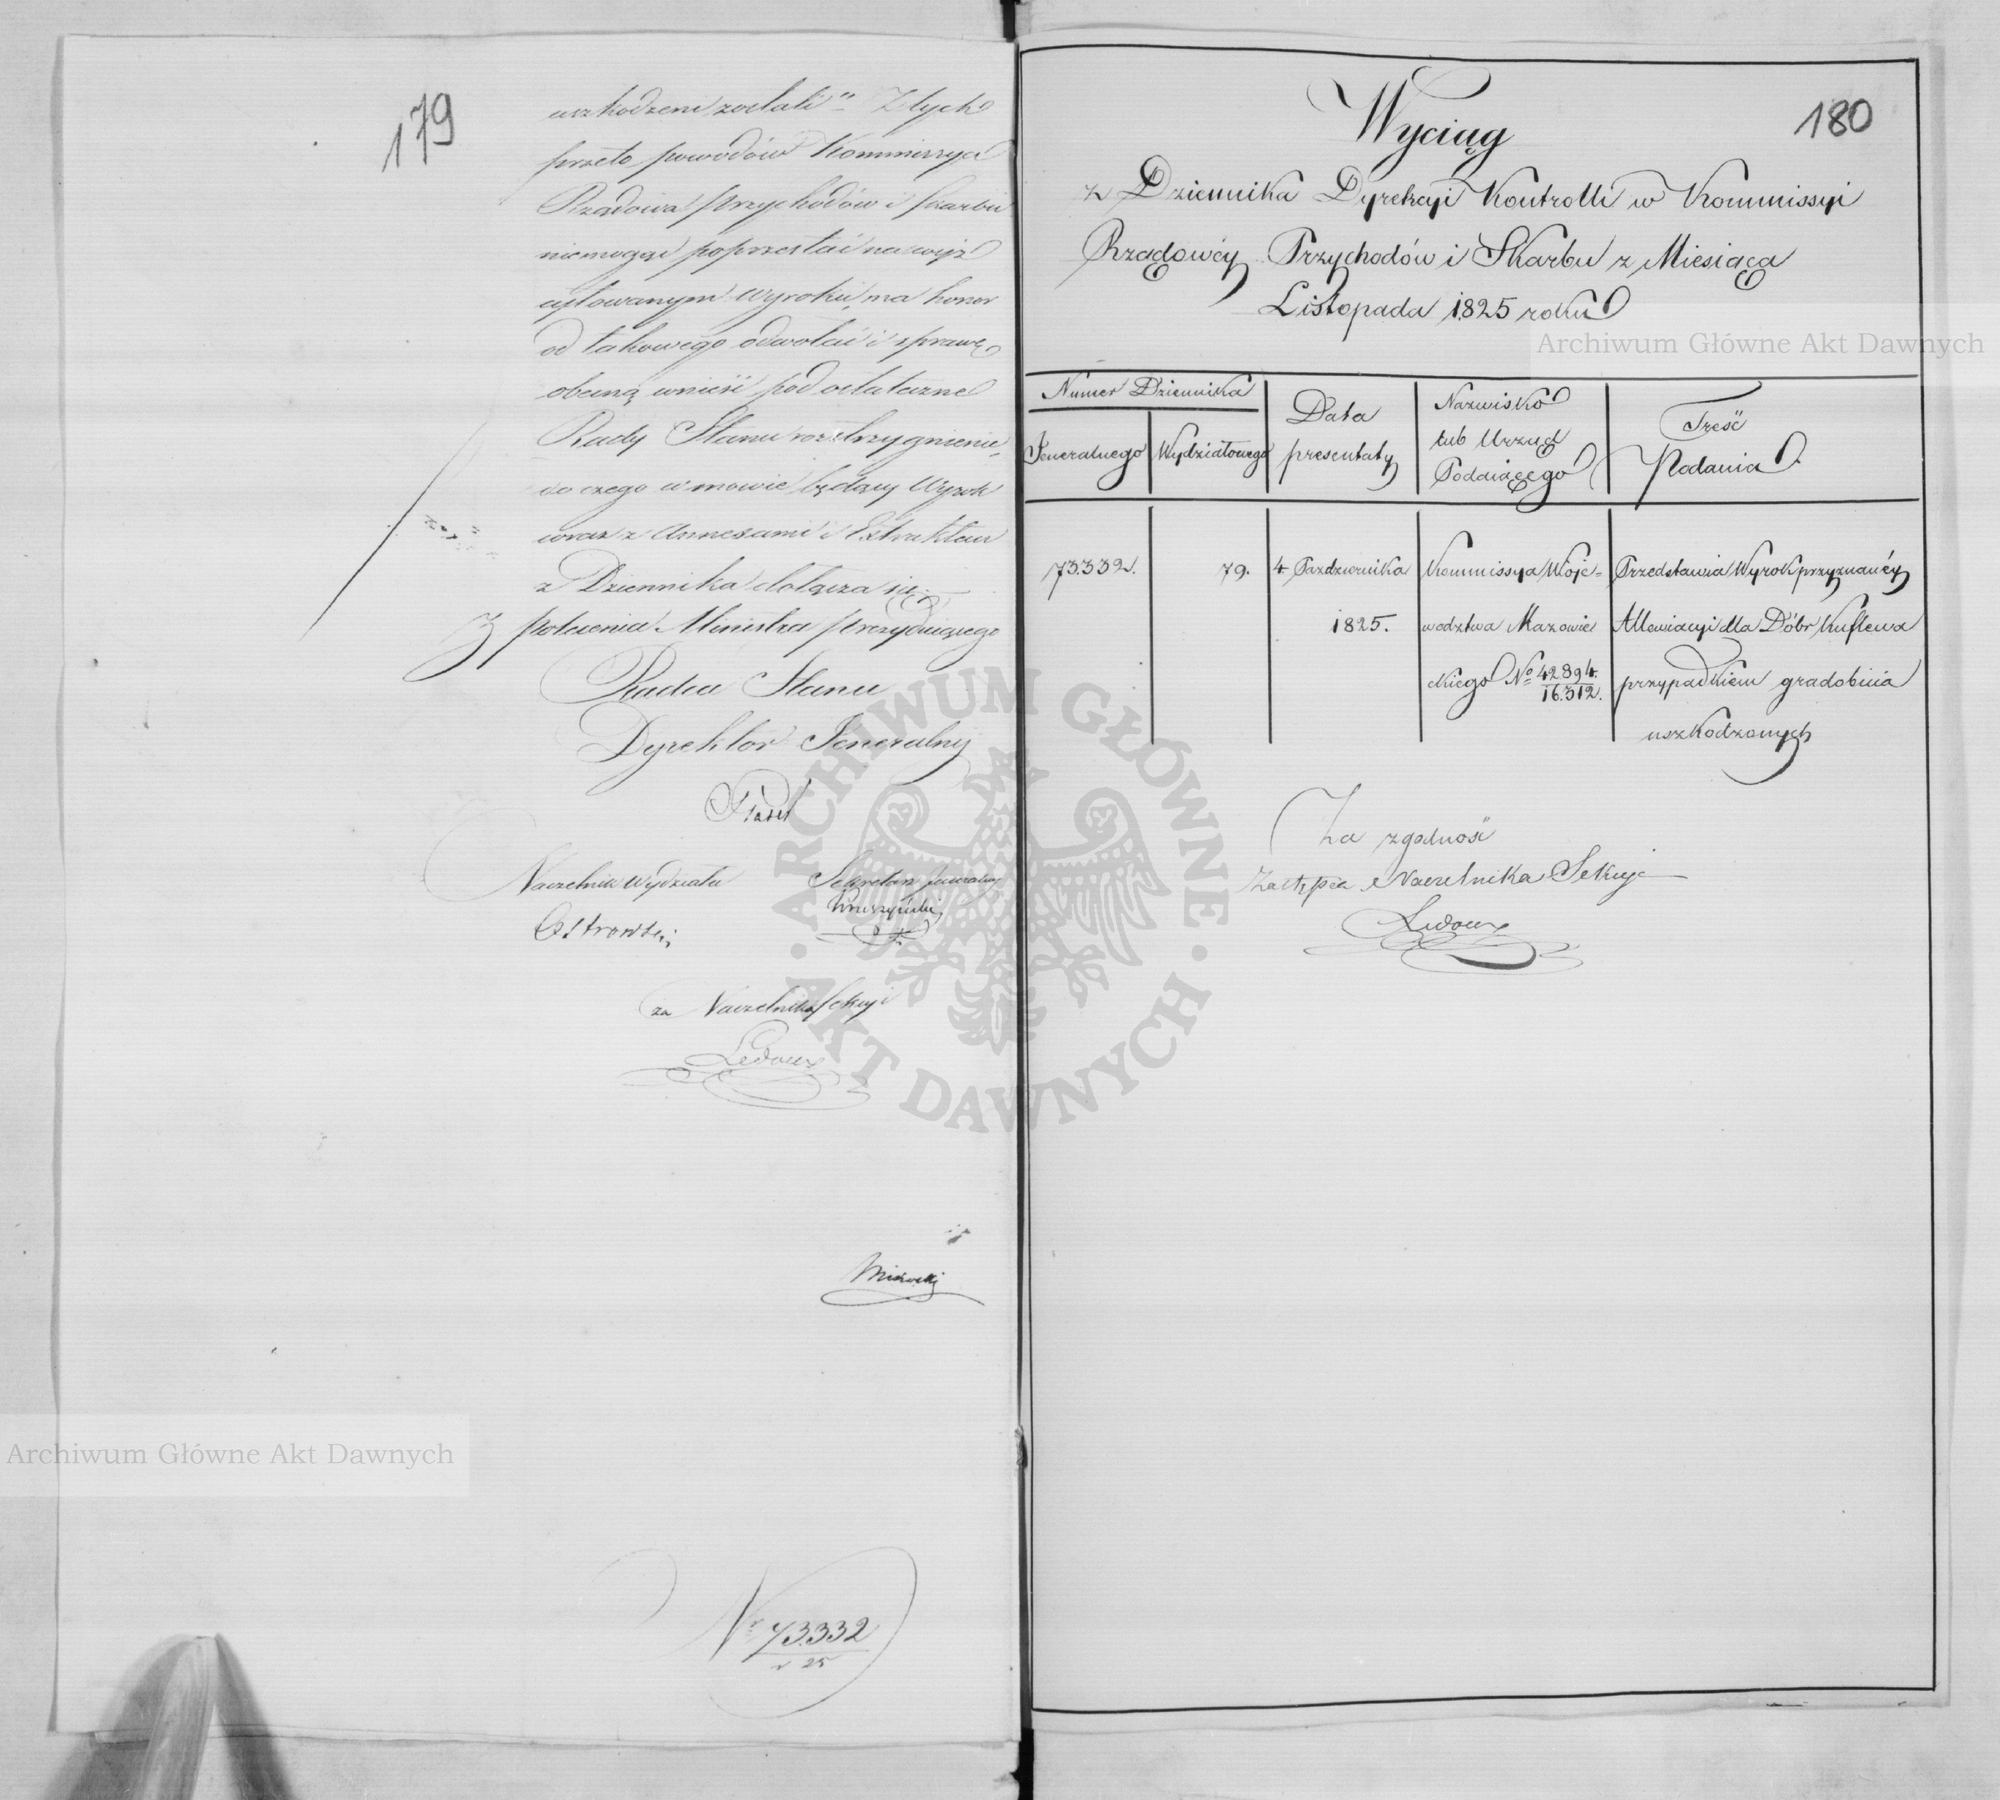 179
uszkodzeni zostali" Z tych
przeto powodów Kommissya
Rządowa Przychodów i Skarbu
niemogąc poprzestać na wyż
cytowanym Wyroku, ma honor
od takowego odwołać i sprawę
obecną wnieść pod ostateczne
Rady Stanu rozstrzygnienie
do czego w mowie będący Wyrok
wraz z Annexami i Extraktem
z Dziennika dołącza się.
Z polecenia Ministra Prezydującego
Radca Stanu
Dyrektor Jeneralny
Naczelnik Wydziału
Sekretarz Jeneralny
Ostrowski
za Naczelnika Sekcyi
Ledoux
Nr 73.332
r 25
180
Wyciąg
z Dziennika Dyrekcyi Kontrolli w Kommissyi
Rządowéy Przychodów i Skarbu z Miesiąca
Listopada 1825 roku
Numer Dziennika
Jeneralnego
Wydziałowego
Data
presentaty
Nazwisko
lub Urząd
Podaiącego
Treść
Podania
73.332.
79.
4 Pazdziernika
1825.
Kommissya Woje=
wodztwa Mazowie
ckiego No 42894.
16.312.
Przedstawia Wyrok przyznaiéy
Allewiacyi dla Dóbr Kuflewa
przypadkiem gradobicia
uszkodzonych
Za zgodność
Zastępca Naczelnika Sekcyi
Ledoux
Archiwum Główne Akt Dawnych
Archiwum Główne Akt Dawnych
ARCHIWUM GŁÓWNE AKT DAWNYCH